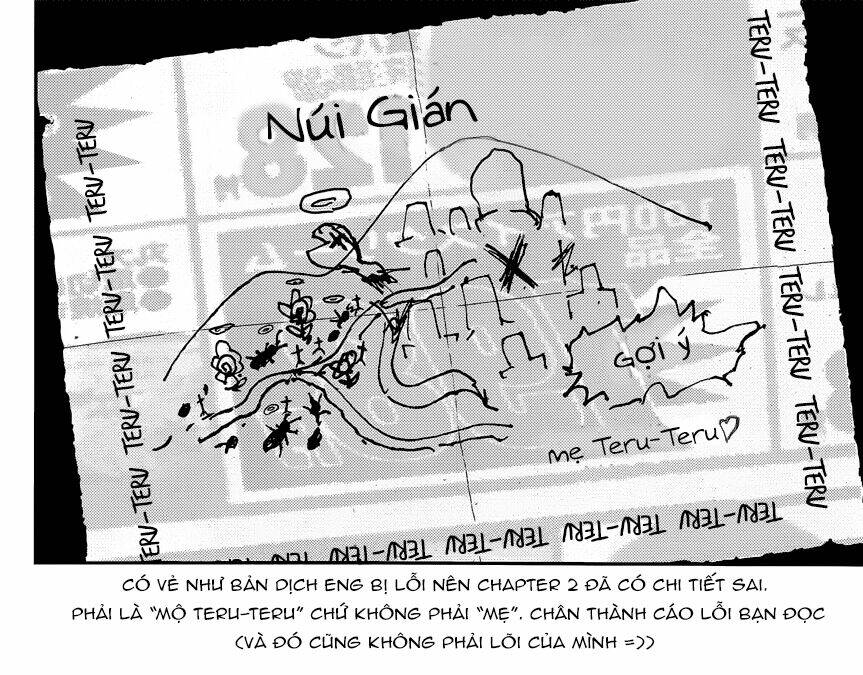 Núi Gián
Gợi ý
mẹ Teru-Teru♡
TERU-TERU TERU-TERU TERU-TERU TERU-TERU TERU-TERU
TERU-TERU TERU-TERU TERU-TERU TERU-TERU
TERU-TERU TERU-TERU TERU-TERU TERU-TERU
128
100円
全品
CÓ VẺ NHƯ BẢN DỊCH ENG BỊ LỖI NÊN CHAPTER 2 ĐÃ CÓ CHI TIẾT SAI.
PHẢI LÀ “MỘ TERU-TERU” CHỨ KHÔNG PHẢI “MẸ”. CHÂN THÀNH CÁO LỖI BẠN ĐỌC
(VÀ ĐÓ CŨNG KHÔNG PHẢI LÕI CỦA MÌNH =))